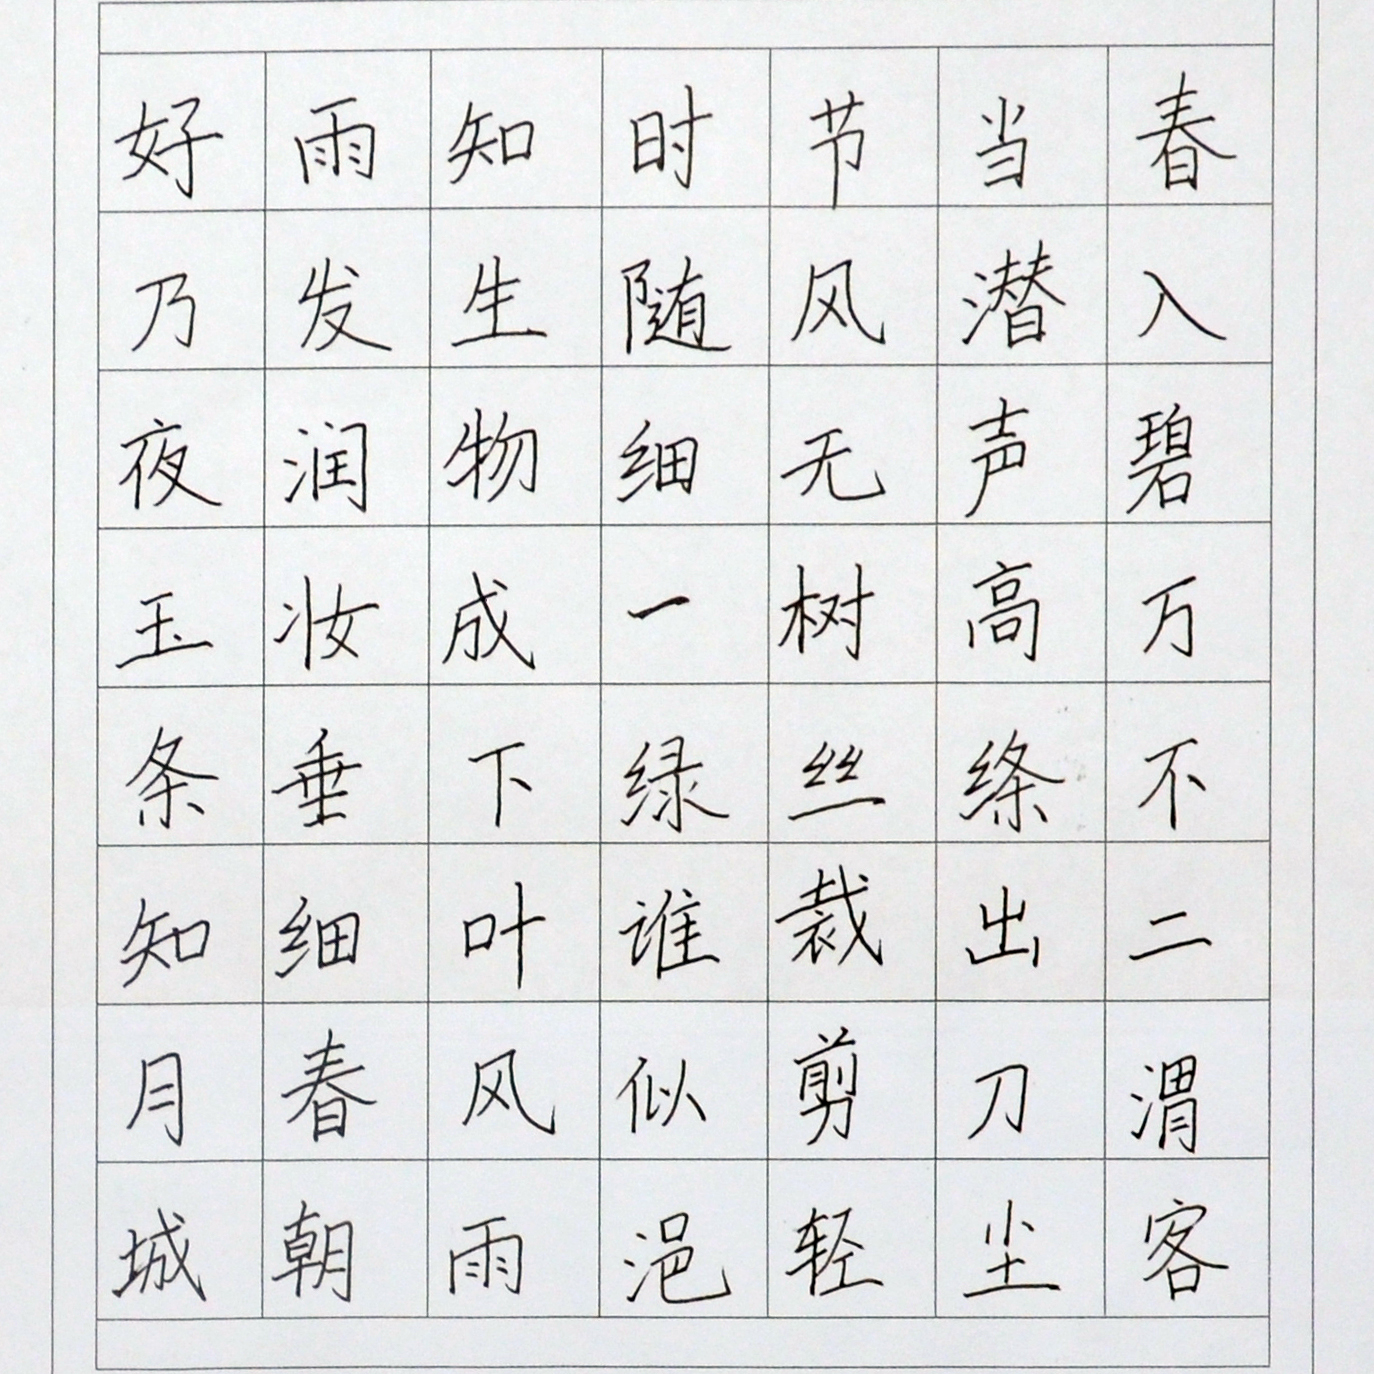 好雨知时节当春
乃发生随风潜入
夜润物细无声碧
玉妆成一树高万
条垂下绿丝绦不
知细叶谁裁出二
月春风似剪刀渭
城朝雨浥轻尘客